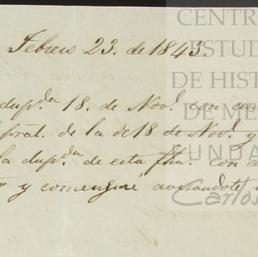 Febrero 23. de 1843.
dup.da 18. de Nov.e con
pral. de la de 18 de Nov.e y
la dup.da de esta fha. con
y comienze
CENTR
ESTUD
DE HIST
DE ME
FUNDA
Carlos